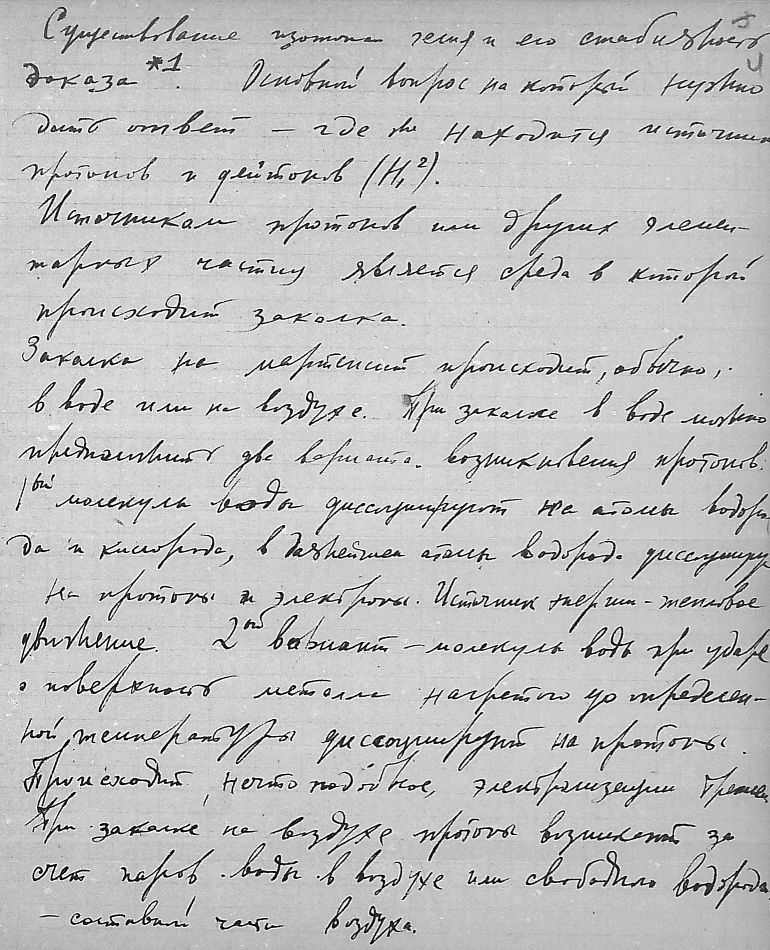 Существование изотопа гелия и его стабильность
доказа *1. Основной вопрос на который нужно
дать ответ – где же находится источник
протонов и дейтонов (H₁²).
Источникам протонов или других элемен-
тарных частиц является среда в которой
происходит закалка.
Закалка на мартенсит происходит, обычно,
в воде или на воздухе. При закалке в воде можно
предположить два варианта возникновения протонов:
1ый молекулы воды диссоциируют на атомы водоро-
да и кислорода, в дальнейшем атомы водорода диссоциируют
на протоны и электроны. Источник энергии – тепловое
движение. 2ой вариант – молекулы воды при ударе
о поверхность металла нагретого до определен-
ной температуры диссоциируют на протоны.
Происходит нечто подобное, электризации трением
При закалке на воздухе протоны возникают за
счет паров воды в воздухе или свободного водорода
– составной части воздуха.